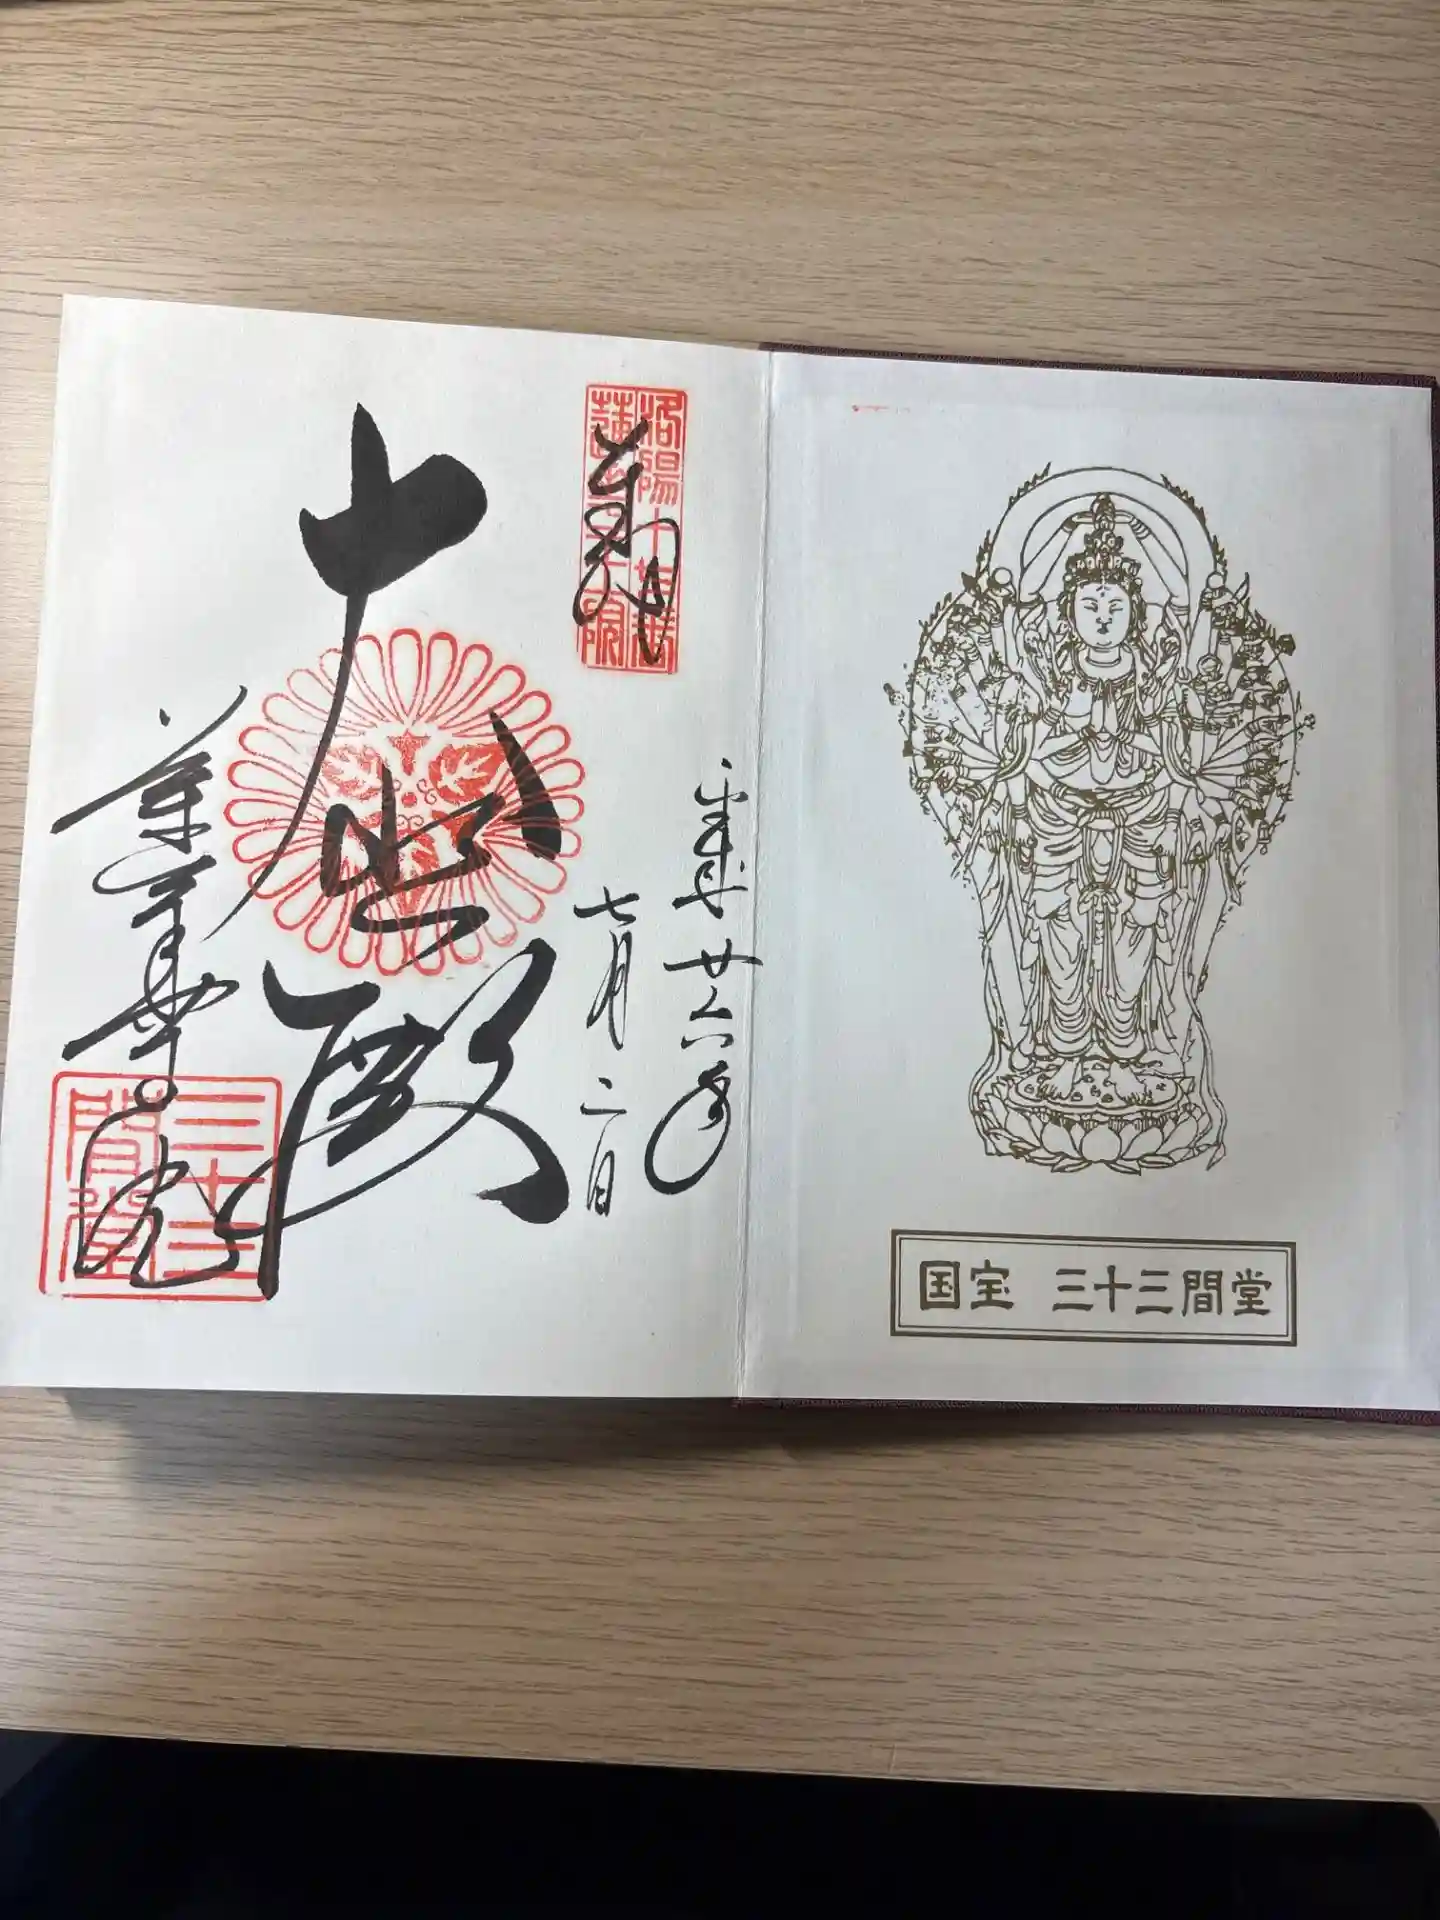 国宝 三十三間堂
奉拝
洛陽十七番
蓮華王院
平成廿六年
七月二日
大悲殿
三十三
間堂